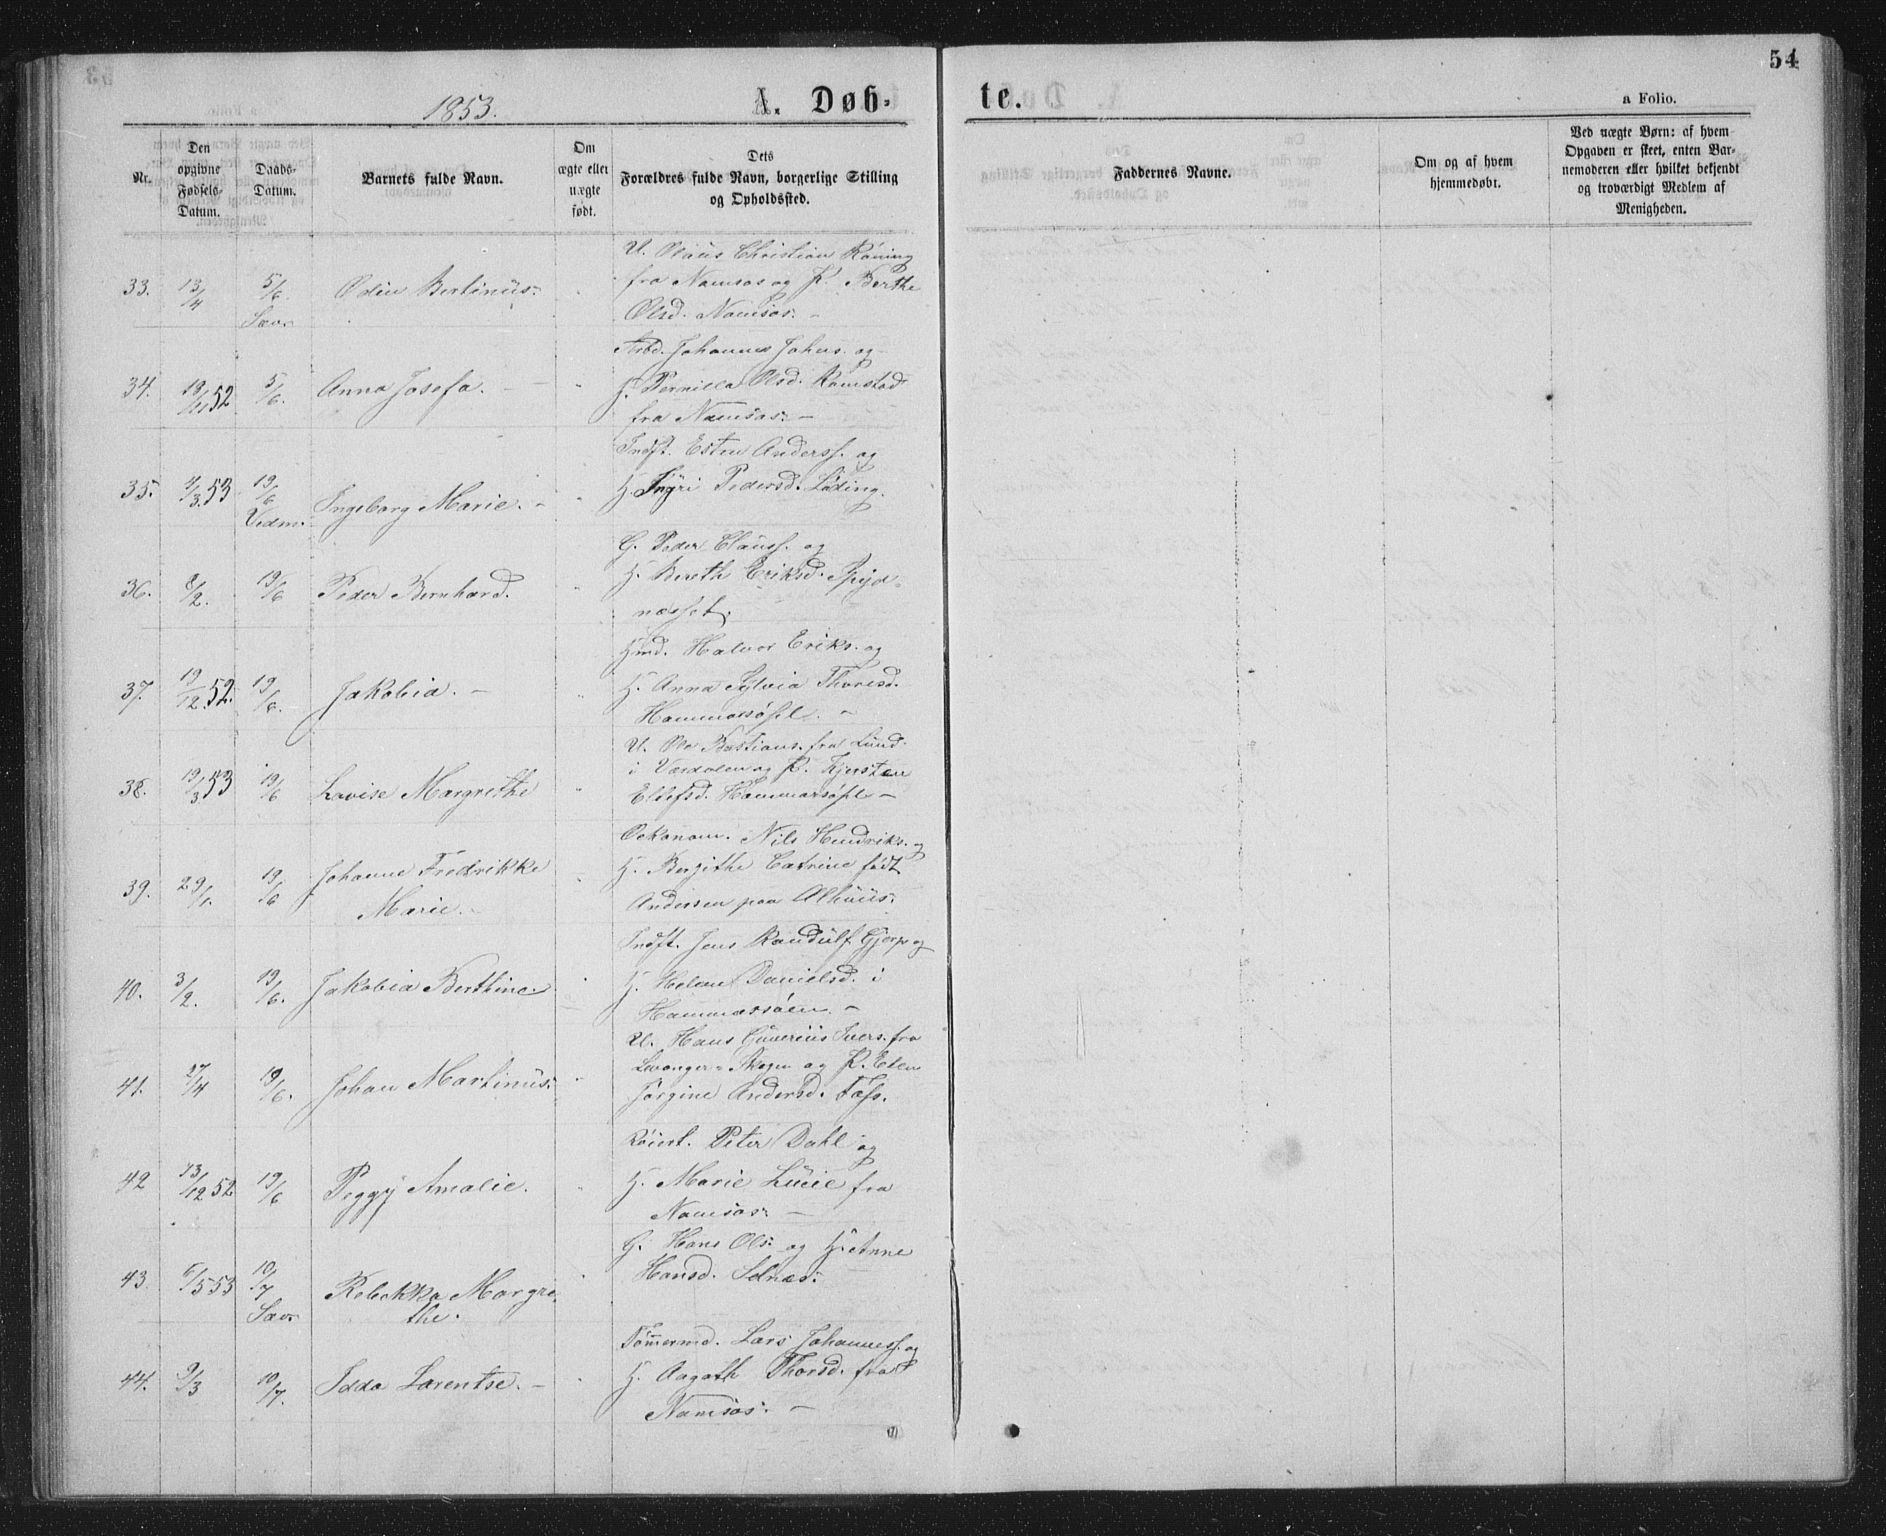 54
1853.
A. Døb-
te.
a Folio.
Nr.
Den
opgivne
Fødsels-
Datum.
Daabs-
Datum.
Barnets fulde Navn.
Om
ægte eller
uægte
født.
Dets
Forældres fulde Navn, borgerlige Stilling
og Opholdssted.
Faddernes Navne.
Om og af hvem
hjemmedøbt.
Ved uægte Børn: af hvem
Opgaven er skeet, enten Bar-
nemoderen eller hvilket bekjendt
og troværdigt Medlem af
Menigheden.
U. Olaus Christian Röning
33. 13/4 5/6. Odin Bertinus. fra Namsos og P. Berthe
Sævr Olsd. Namsos. -
Arbd. Johannes Johns. og
34. 19/11 52 5/6. Anna Josefa. - H. Pernilla Olsd. Ramstad
fra Namsos. -
Indst. Esten Anderss. og
35. 4/3. 53 19/6 Ingeborg Marie. - H. Ingri Pedersd. Løding.
Vedm.
G. Peder Clauss. og
36. 8/2. 19/6 Peder Bernhard. H. Bereth Eriksd. Spyd-
nesset.
Hmd. Halvor Eriks. og
37. 19/12. 52. 19/6. Jakobia. - H. Anna Sylvia Thoresd.
-
U. Ole Bastians. fra Lund
38. 19/3 53 19/6 Lovise Margrethe i Værdalen og P. Kjersten
Oekonom. Nils Hendriks. og
39. 29/1. 19/6 Johanne Fredrikke H. Bergithe Catrine født
Marie. - Andersen paa Alhuus.
Indst. Jens Randulf Gjerp og
40. 3/2. 19/6. Jakobia Berthine. H. Helene Danielsd. i
Hammersøen. -
U. Hans Guverius Ivers. fra
41. 27/4 19/6. Johan Martinus. Levanger-Skogen og P. Elen
Jørgine Andersd. Foss.
Peter Dahl og
42 13/12 52 19/6 Peggy Amalie. H. Marie Lucie fra
Namsos. -
G. Hans Ols. og H. Anne
43. 6/5 53 10/7 Rebekka Margre- Hansd. Selnæs.
Sævr the.
Tømermd. Lars Johanness. og
44. 9/3 10/7. Idda Larentse. - H. Aagoth Thorsd. fra
Namsos. -